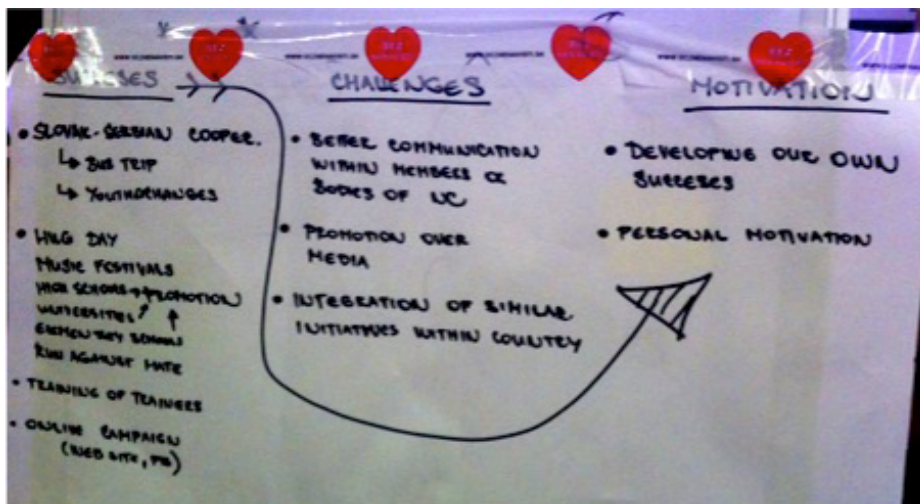 SUCCESES
CHALLENGES
MOTIVATION
• SLOVAK-SERBIAN COOPER.
↳ BUS TRIP
↳ YOUTHXCHANGES
• HUG DAY
MUSIC FESTIVALS
HIGH SCHOOLS → PROMOTION
UNIVERSITIES
ELEMENTARY SCHOOL
RUN AGAINST HATE
• TRAINING OF TRAINERS
• ONLINE CAMPAIGN
(WEB SITE, FB)
• BETTER COMMUNICATION
WITHIN MEMBERS OR
BODIES OF NC
• PROMOTION OVER
MEDIA
• INTEGRATION OF SIMILAR
INITIATIVES WITHIN COUNTRY
• DEVELOPING OUR OWN
SUCCESES
• PERSONAL MOTIVATION